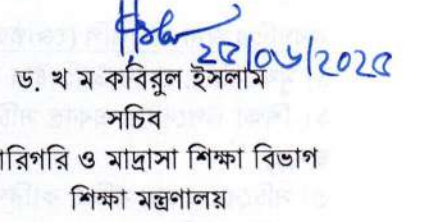 ২৫/০৬/২০২৫
ড. খ ম কবিরুল ইসলাম
সচিব
ারিগরি ও মাদ্রাসা শিক্ষা বিভাগ
শিক্ষা মন্ত্রণালয়